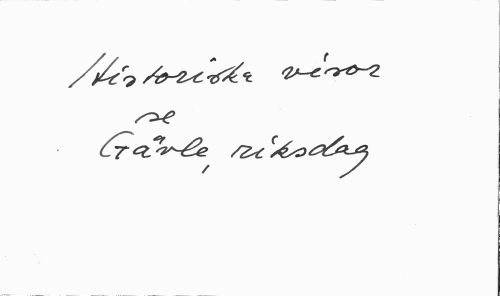 Historiska visor
se
Gävle, riksdag